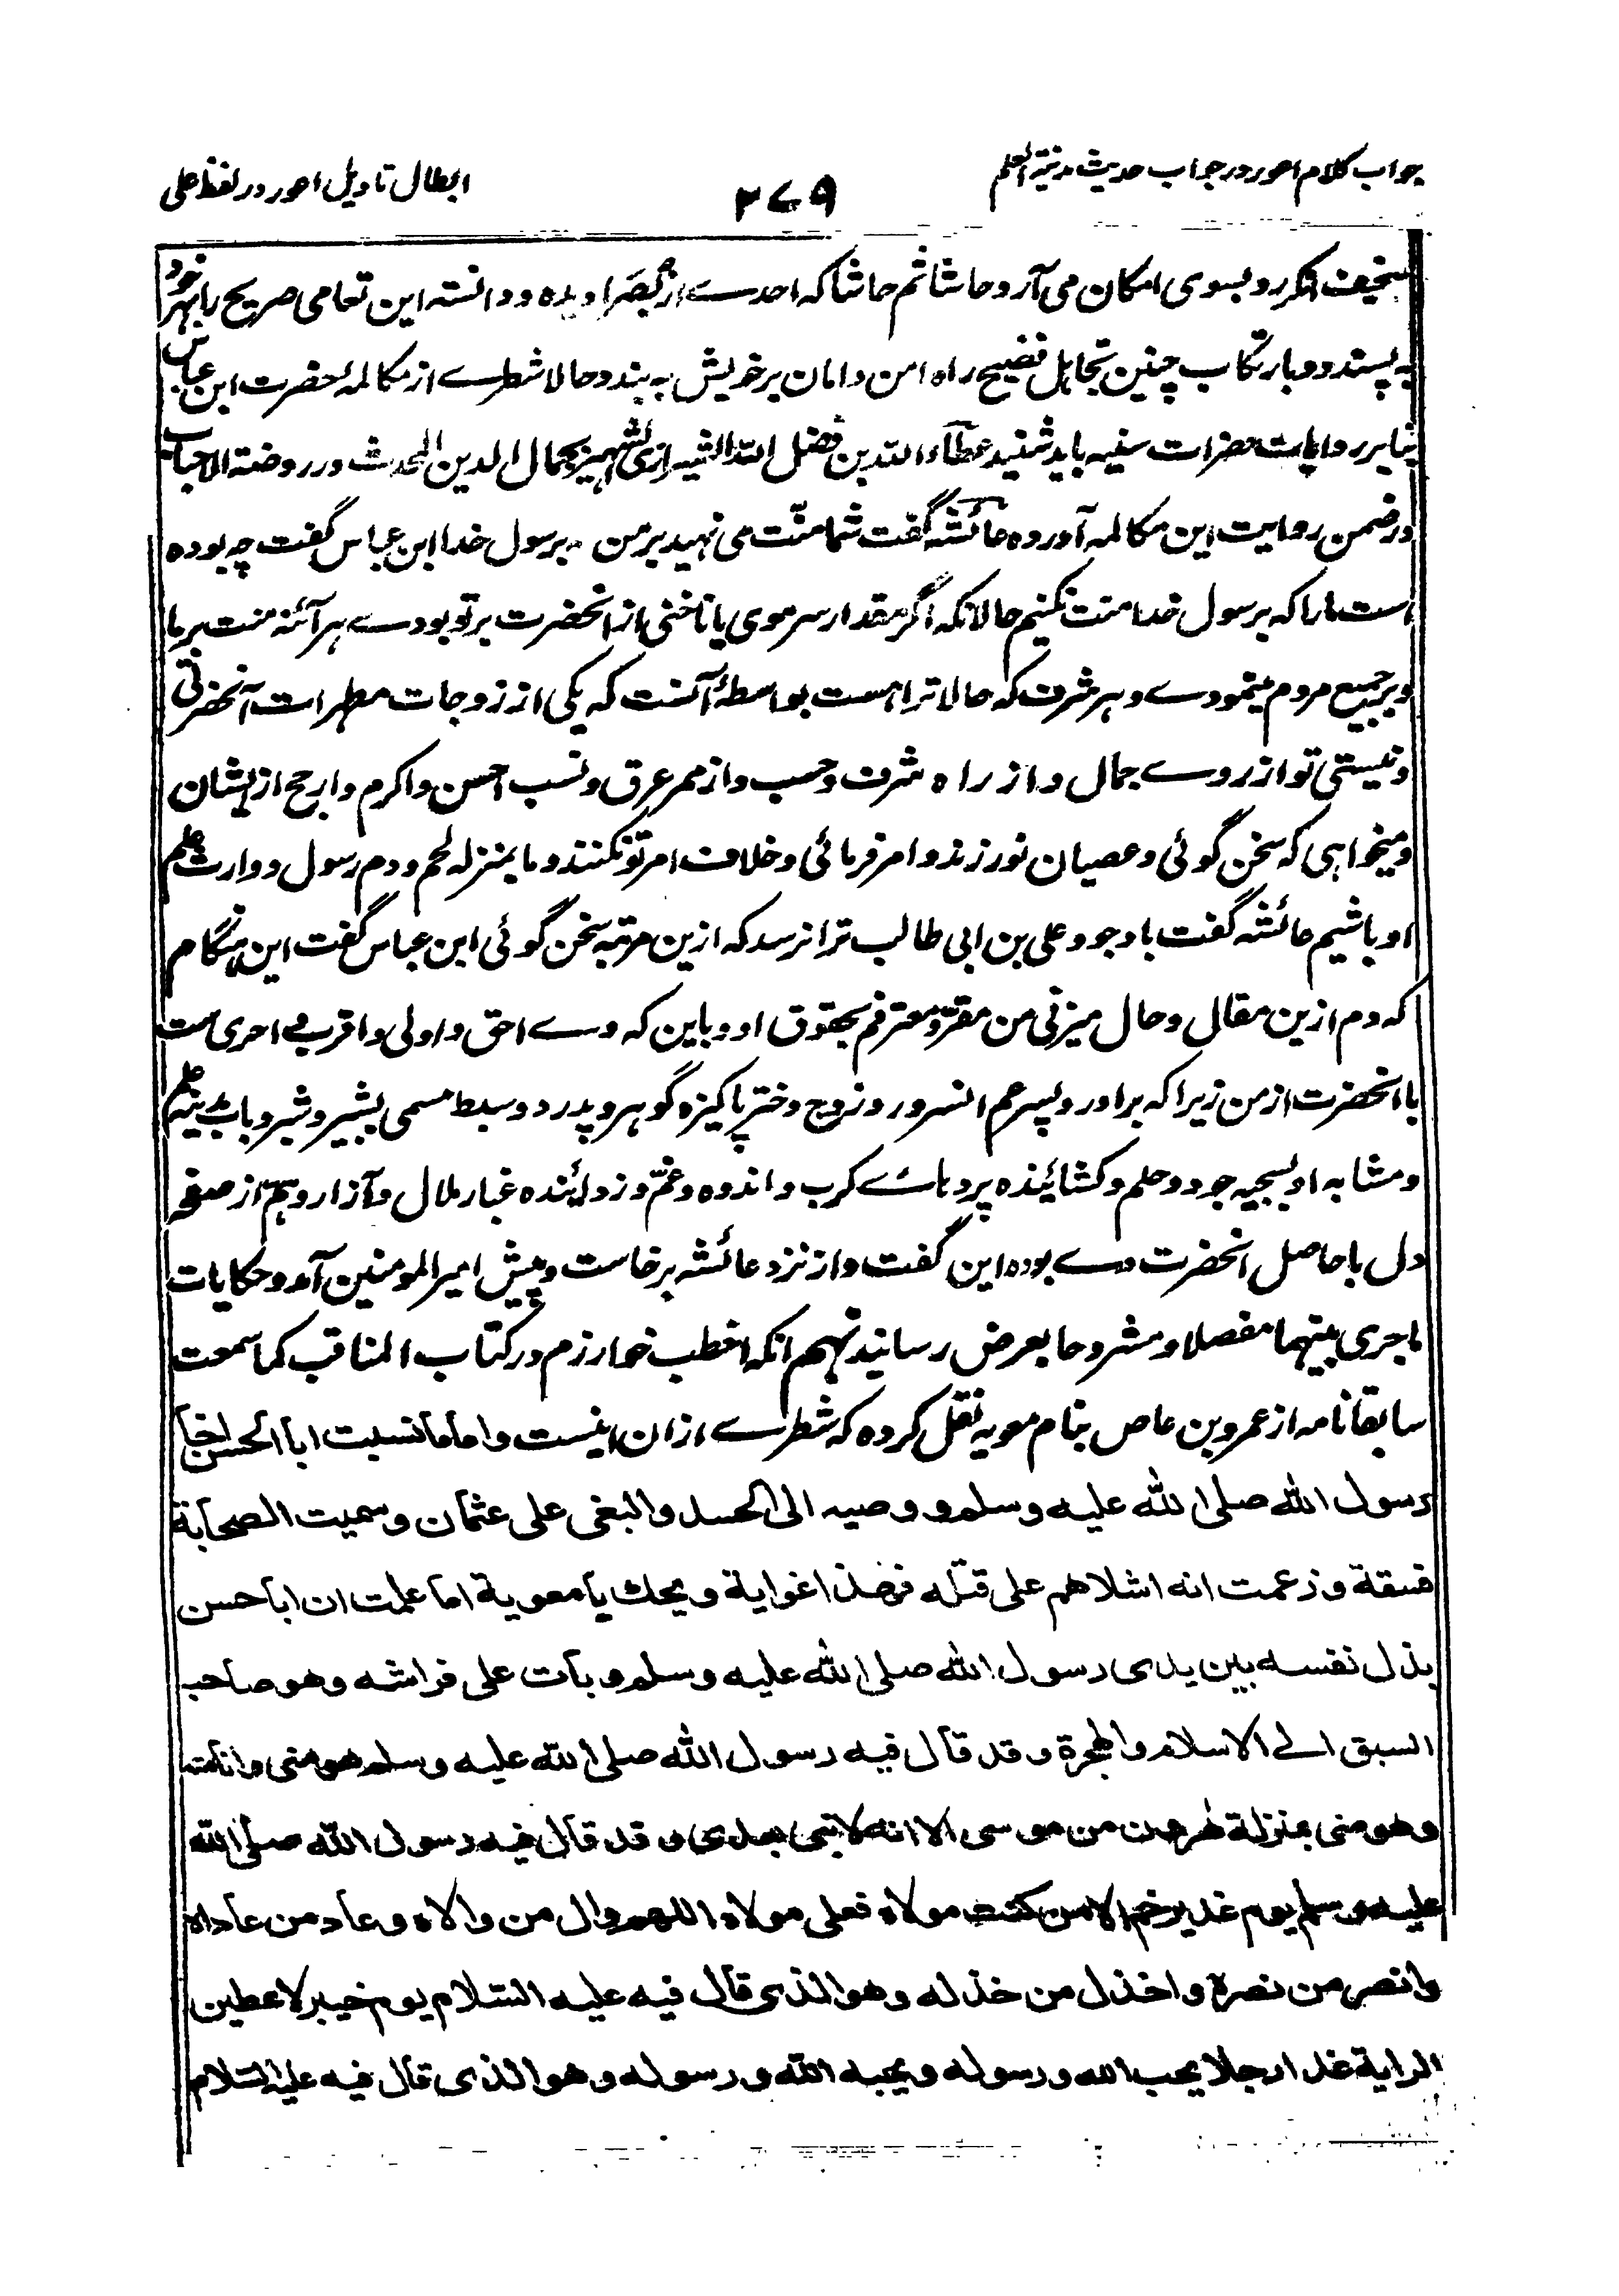 جواب کلام اعور در جواب حدیث مدینة العلم
۲۷۹
ابطال تاویل اعور در لفظ علی
سخیف انکر رو بسوی امکان می آرد حاشا ثم حاشا که احدے از بصرا دیده و دانسته این تعامی صریح را بهر خود
به پسندد و بارتکاب چنین تجاهل فضیح راه امن و امان بر خویش به بندد حالا شطرے از مکالمۂ حضرت ابن عباس
بنابر روایات حضرات سنیه باید شنید عطاء الله بن فضل الله الشیرازی الشهیر بجمال الدین المحدث در روضة الاحباب
در ضمن روایت این مکالمه آورده عائشه گفت شما منّت می نهید بر من برسول خدا ابن عباس گفت چه بوده
است ما را که برسول خدا منت نکنیم حالانکه اگر مقدار سر موی یا ناخنی از انحضرت بر تو بودے هر آئنه منت بر ما
و بر جمیع مردم مینمودے و هر شرف که حالا ترا هست بواسطۂ آنست که یکی از زوجات مطهرات آنحضرتی
و نیستی تو از روے جمال و از راه شرف و حسب و از ممر عرق و نسب احسن و اکرم و ارجح از ایشان
و میخواهی که سخن گوئی و عصیان نورزند و امر فرمائی و خلاف امر تو نکنند و ما بمنزله لحم و دم رسول و وارث علم
او باشیم عائشه گفت باوجود علی بن ابی طالب ترا نرسد که ازین مرتبه سخن گوئی ابن عباس گفت این هنگام
که دم ازین مقال و حال میزنی من مقرّ و معترفم بحقوق او و باین که وے احق و اولی و اقرب و احری ست
با انحضرت از من زیرا که برادر و پسر عم انسرور و زوج دختر پاکیزه گوهر و پدر دو سبط مسمی بشبیر و شبر و باب مدینه علم
و مشابه او بسجیه جود و حلم و کشائینده پردہائے کرب و اندوه و غمّ و زدائنده غبار ملال و آزار و هم از صفحه
دل با حاصل انحضرت وے بوده این گفت و از نزد عائشه برخاست و پیش امیر المومنین آمد و حکایات
ما جری بینهما مفصلا و مشروحا بعرض رسانید نهم انکه اخطب خوارزم در کتاب المناقب کما سمعت
سابقا نامه از عمرو بن عاص بنام معویه نقل کرده که شطرے ازان اینست واما ما نسبت ابا الحسن اخا
رسول الله صلی الله علیه وسلم و وصیه الی الحسد والبغی علی عثمان وسمیت الصحابة
فسقة وزعمت انه اشلاهم علی قتله فهذا غوایة ویحك یا معویة اما علمت ان ابا حسن
بذل نفسه بین یدی رسول الله صلی الله علیه وسلم وبات علی فراشه وهو صاحب
السبق الے الاسلام والهجرة وقد قال فیه رسول الله صلی الله علیه وسلم هو منی وانا منه
وهو منی بمنزلة هرون من موسی الا انه لا نبی بعدی وقد قال فیه رسول الله صلی الله
علیه وسلم یوم غدیر خم الا من کنت مولاه فعلی مولاه اللهم وال من والاه وعاد من عاداه
وانصر من نصره واخذل من خذله وهو الذی قال فیه علیه السّلام یوم خیبر لاعطین
الرایة غدا رجلا یحب الله ورسوله ویحبه الله ورسوله وهو الذی قال فیه علیه السّلام